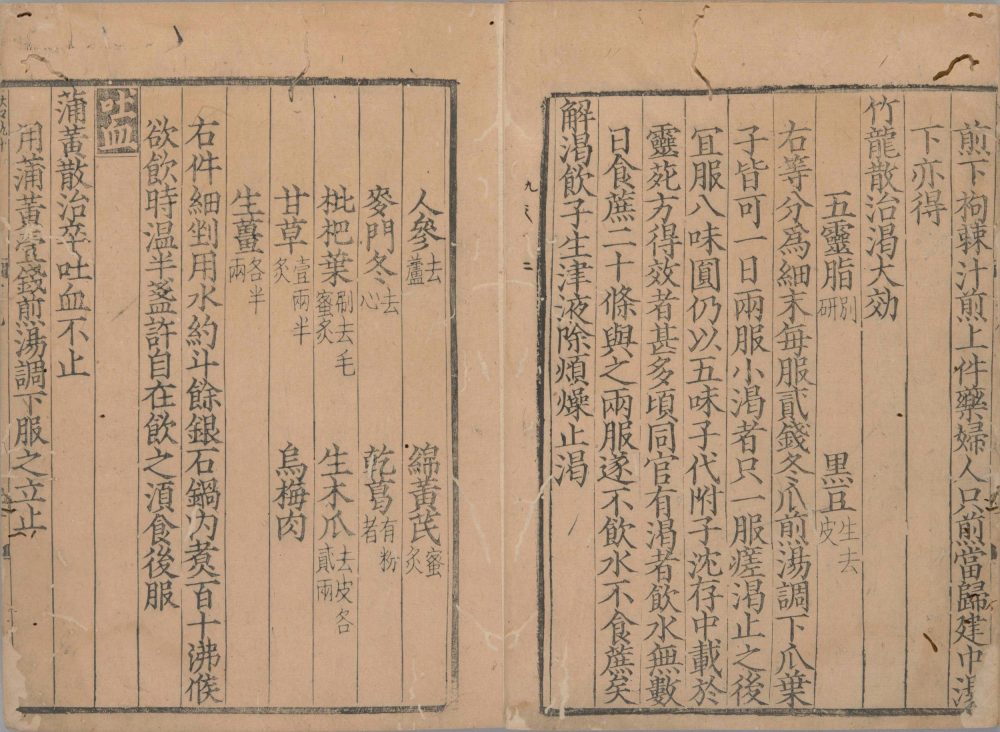 煎下拘棘汁煎上件藥婦人只煎當歸建中湯
下亦得
竹龍散治渴大効
五靈脂别研 黒豆生去皮
右等分爲細末每服貳錢冬瓜煎湯調下瓜葉
子皆可一日兩服小渴者只一服瘥渴止之後
宜服八味圓仍以五味子代附子沈存中載於
靈苑方得效者甚多頃同官有渴者飲水無數
日食蔗二十條與之兩服遂不飲水不食蔗矣
解渴飲子生津液除煩燥止渴
九 二
人參去蘆 綿黃茋蜜炙
麥門冬去心 乾葛有粉者
枇杷葉刷去毛蜜炙 生木瓜去皮各貳兩
甘草壹兩半炙 烏梅肉
生薑各半兩
右件細剉用水約斗餘銀石鍋内煑百十沸候
欲飲時温半盞許自在飲之湏食後服
吐血
蒲黃散治卒吐血不止
用蒲黃壹錢煎湯調下服之立止